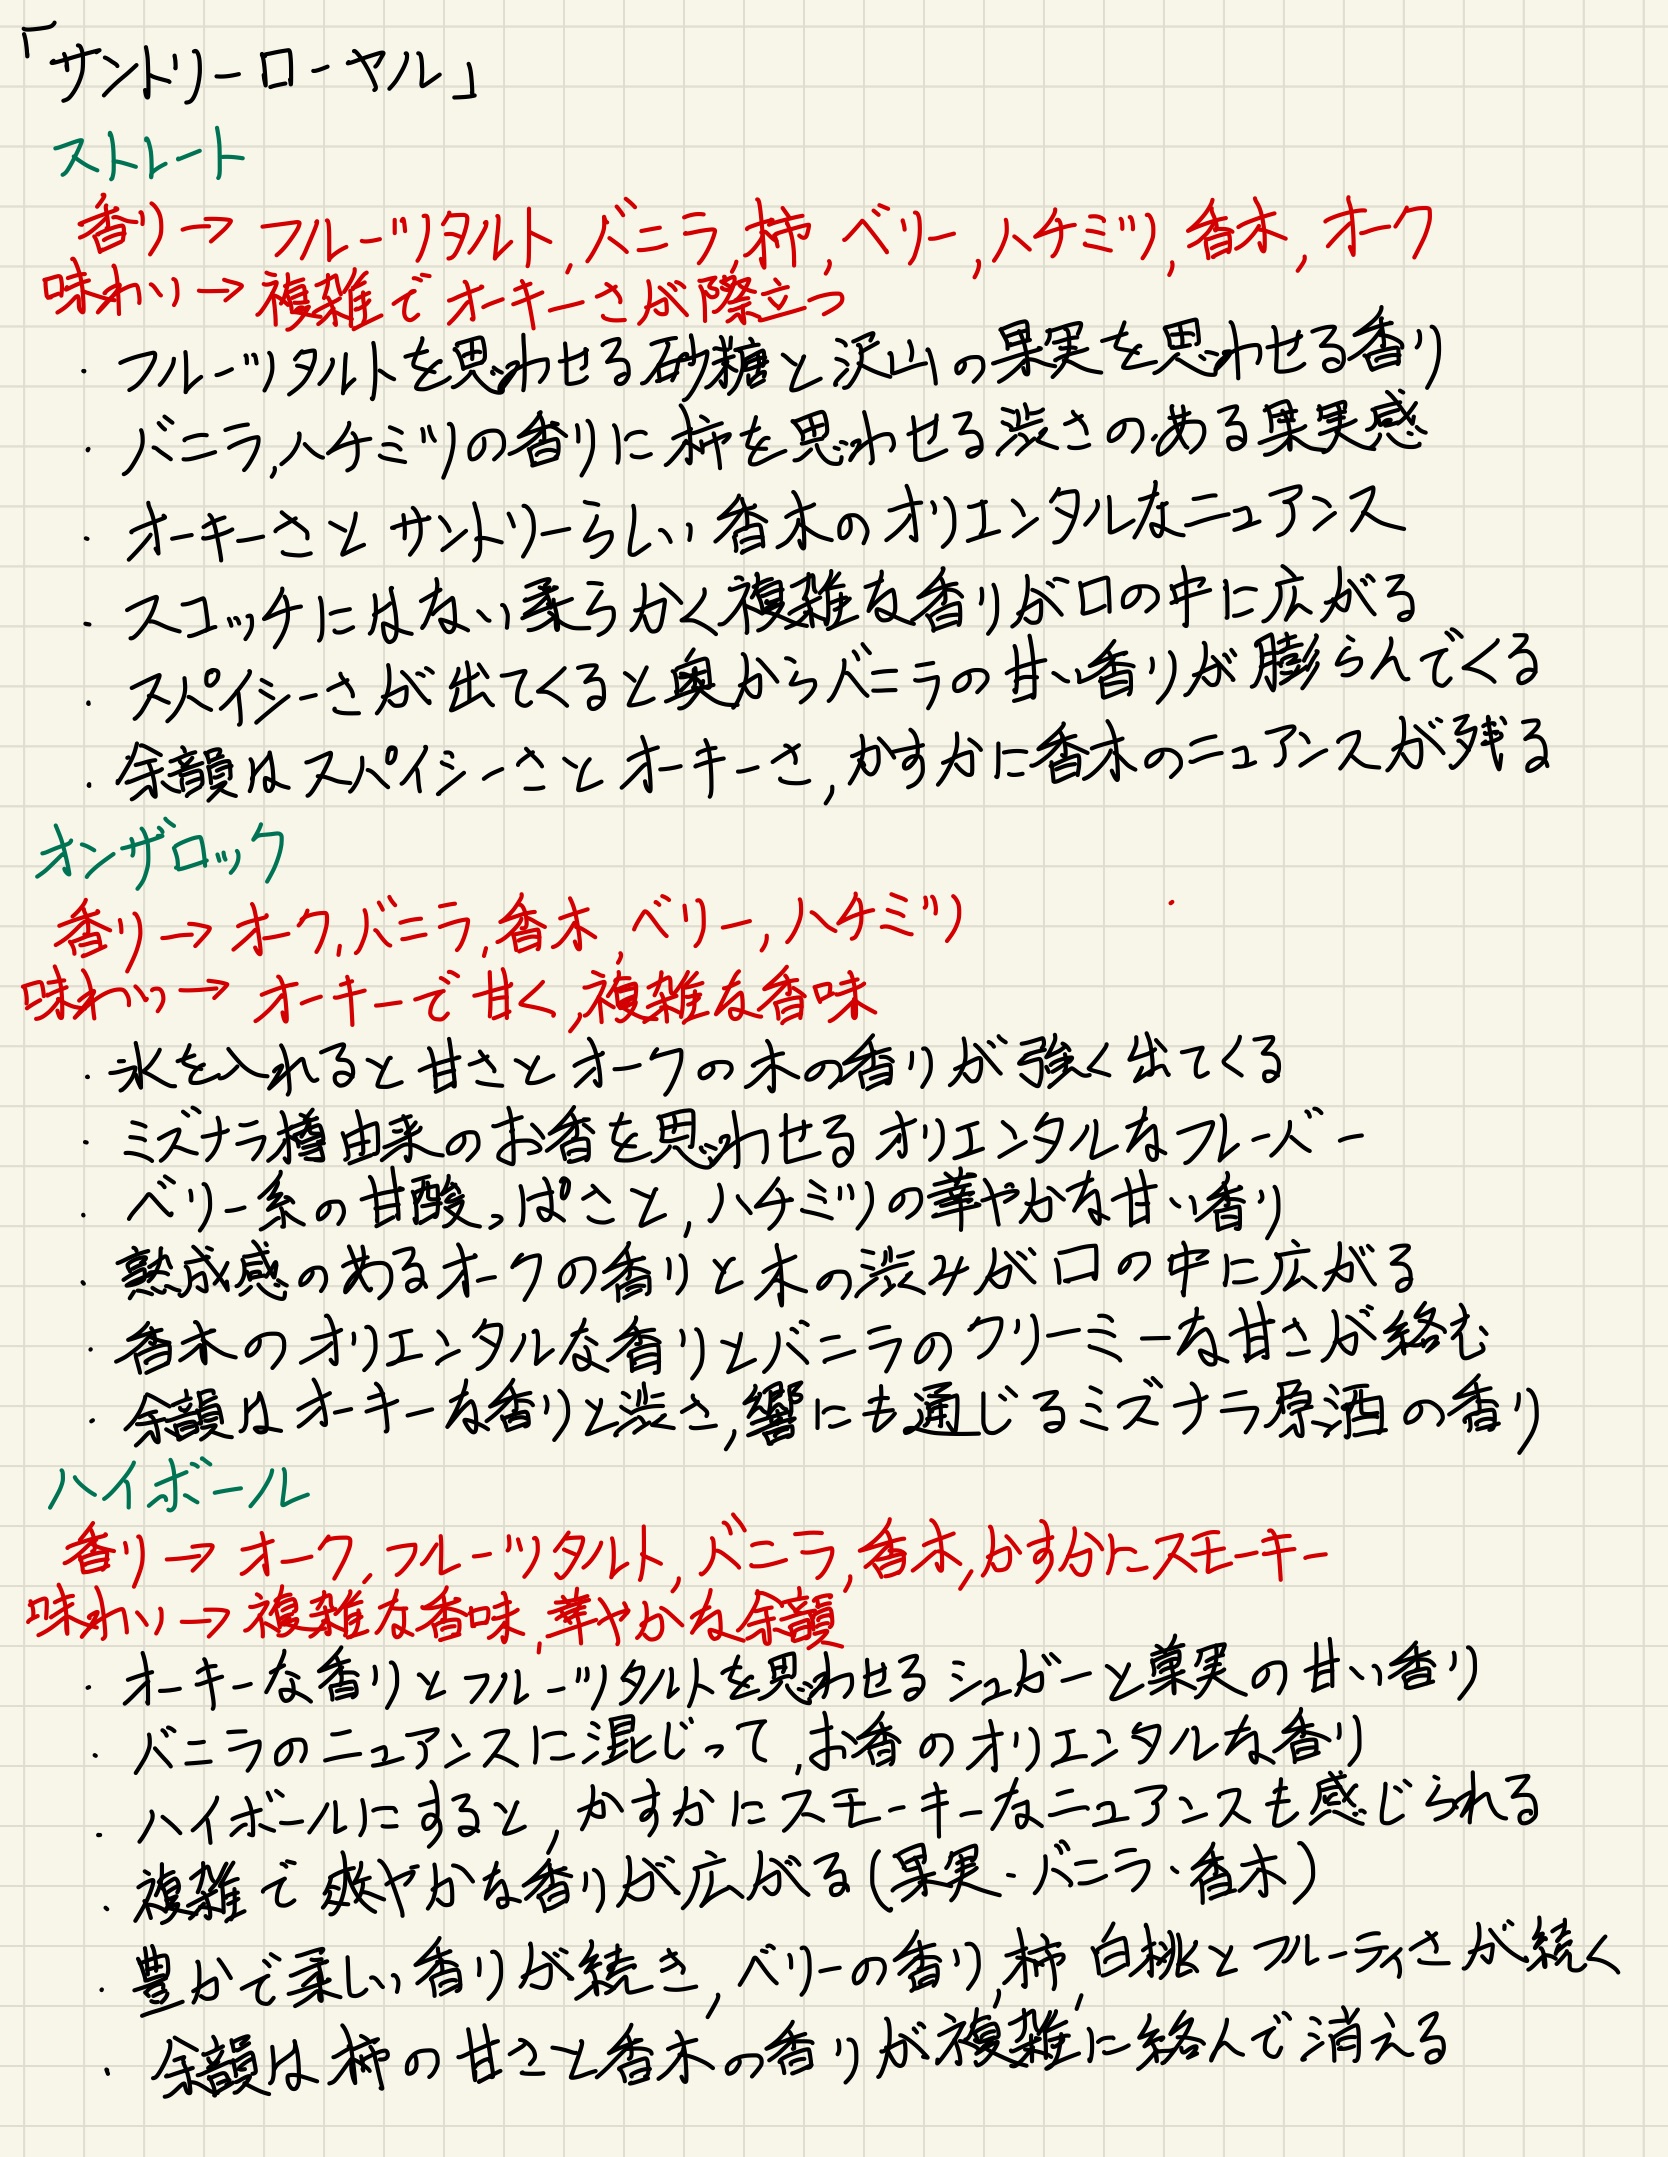 「サントリーローヤル」
ストレート
香り→フルーツタルト,バニラ,柿,ベリー,ハチミツ,香木,オーク
味わい→複雑でオーキーさが際立つ
・フルーツタルトを思わせる砂糖と沢山の果実を思わせる香り
・バニラ,ハチミツの香りに柿を思わせる渋さのある果実感
・オーキーさとサントリーらしい香木のオリエンタルなニュアンス
・スコッチにはない柔らかく複雑な香りが口の中に広がる
・スパイシーさが出てくると奥からバニラの甘い香りが膨らんでくる
・余韻はスパイシーさとオーキーさ,かすかに香木のニュアンスが残る
オンザロック
香り→オーク,バニラ,香木,ベリー,ハチミツ
味わい→オーキーで甘く,複雑な香味
・氷を入れると甘さとオークの木の香りが強く出てくる
・ミズナラ樽由来のお香を思わせるオリエンタルなフレーバー
・ベリー系の甘酸っぱさと,ハチミツの華やかな甘い香り
・熟成感のあるオークの香りと木の渋みが口の中に広がる
・香木のオリエンタルな香りとバニラのクリーミーな甘さが絡む
・余韻はオーキーな香りと渋さ,響にも通じるミズナラ原酒の香り
ハイボール
香り→オーク,フルーツタルト,バニラ,香木,かすかにスモーキー
味わい→複雑な香味,華やかな余韻
・オーキーな香りとフルーツタルトを思わせるシュガーと菓実の甘い香り
・バニラのニュアンスに混じって,お香のオリエンタルな香り
・ハイボールにすると,かすかにスモーキーなニュアンスも感じられる
・複雑で爽やかな香りが広がる(果実・バニラ・香木)
・豊かで柔しい香りが続き,ベリーの香り,柿,白桃とフルーティさが続く
・余韻は柿の甘さと香木の香りが複雑に絡んで消える